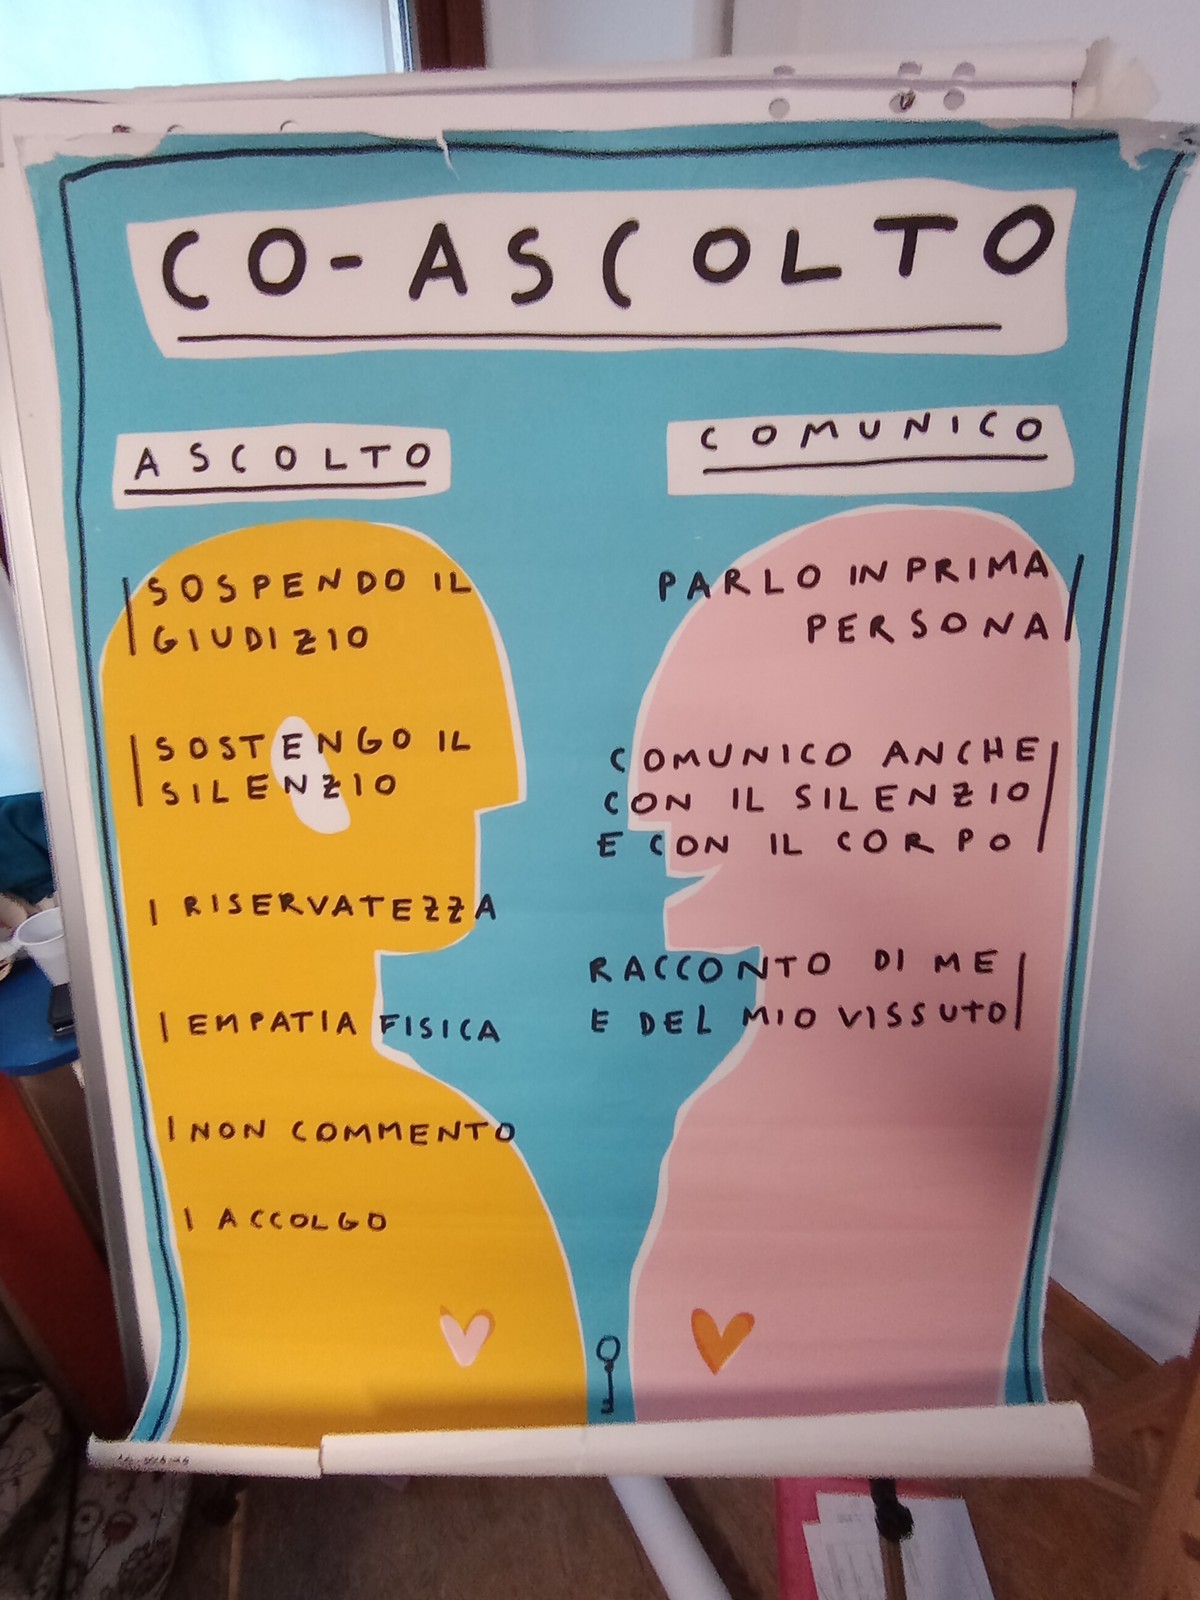 CO-ASCOLTO
ASCOLTO
SOSPENDO IL
GIUDIZIO
SOSTENGO IL
SILENZIO
RISERVATEZZA
EMPATIA FISICA
NON COMMENTO
ACCOLGO
COMUNICO
PARLO IN PRIMA
PERSONA
COMUNICO ANCHE
CON IL SILENZIO
E CON IL CORPO
RACCONTO DI ME
E DEL MIO VISSUTO